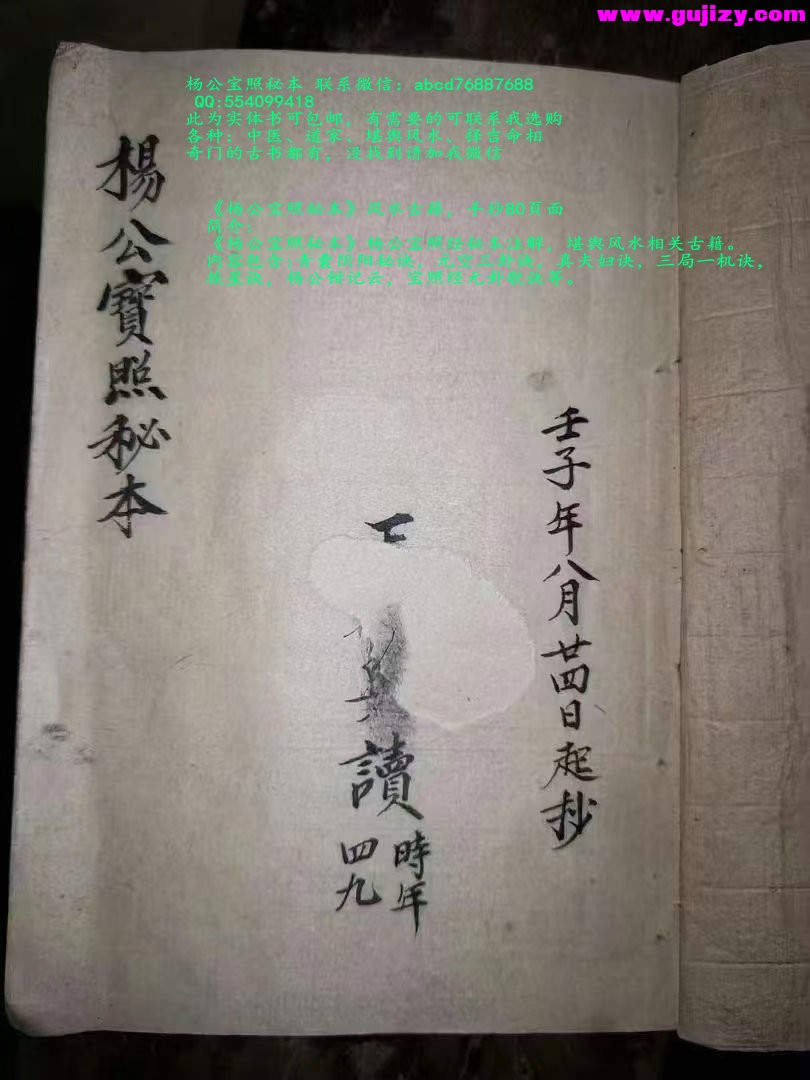 www.gujizy.com
杨公宝照秘本 联系微信：abcd76887688
QQ:554099418
此为实体书可包邮，有需要的可联系我选购
各种：中医、道家、堪舆风水、择吉命相
奇门的古书都有，没找到请加我微信
《杨公宝照秘本》风水古籍，手抄80页面
简介：
《杨公宝照秘本》杨公宝照经秘本注解，堪舆风水相关古籍。
内容包含：青囊阴阳秘诀，元空三卦诀，真夫妇诀，三局一机诀，
挨星诀，杨公钳记云，宝照经元卦歌诀等。
壬子年八月廿四日起抄
讀
時年
四九
楊公寶照秘本